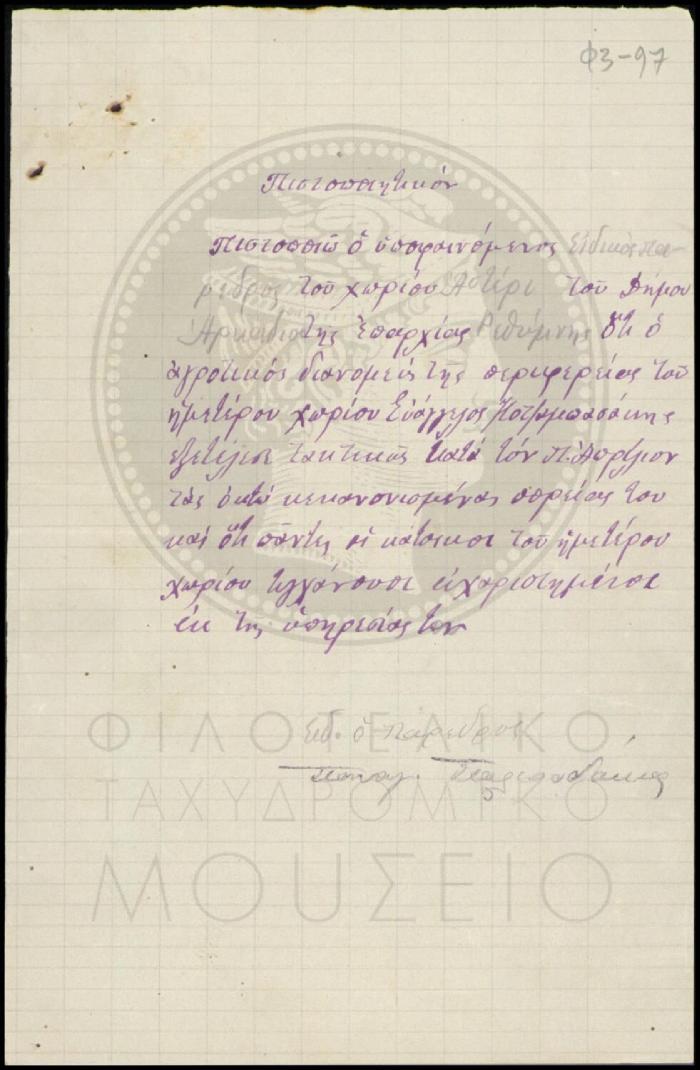 Φ3-97
Πιστοποιητικόν
Πιστοποιῶ ὁ ὑποφαινόμενος Εἰδικὸς πά-
ρεδρος τοῦ χωρίου Ἀστέρι τοῦ Δήμου
Ἀρκαδίου τῆς Ἐπαρχίας Ρεθύμνης ὅτι ὁ
ἀγροτικός διανομεύς τῆς περιφερείας τοῦ
ἡμετέρου χωρίου Εὐάγγελος
ἐξετέλεσε τακτικῶς κατά τόν Ἀπρίλιον
τάς ὀκτώ κεκανονισμένας πορείας του
καί ὅτι πάντες οἱ κάτοικοι τοῦ ἡμετέρου
χωρίου τυγχάνουσι εὐχαριστημένοι
ἐκ τῆς ὑπηρεσίας του
Εἰδ. ὁ Πάρεδρος
Παναγ.
ΦΙΛΟΤΕΛΙΚΟ
ΤΑΧΥΔΡΟΜΙΚΟ
ΜΟΥΣΕΙΟ